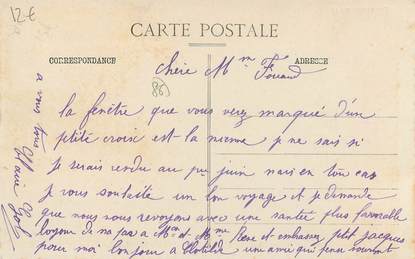 12€
CARTE POSTALE
CORRESPONDANCE
ADRESSE
86
Chère Mm Fouand
la fenêtre que vous verez marqué d'un
ptite croix est la mienne je ne sais si
je serais rendu au pui juin mais en tou cas
je vous souhaite un bon voyage et je demande
que nous nous revoyons avec une santée plus favorable
bonjour de ma par a Mon et Mme Rene et embrassez ptit jacques
pour moi bonjour a Clotilde une amie qui pense souvent
a vous tous